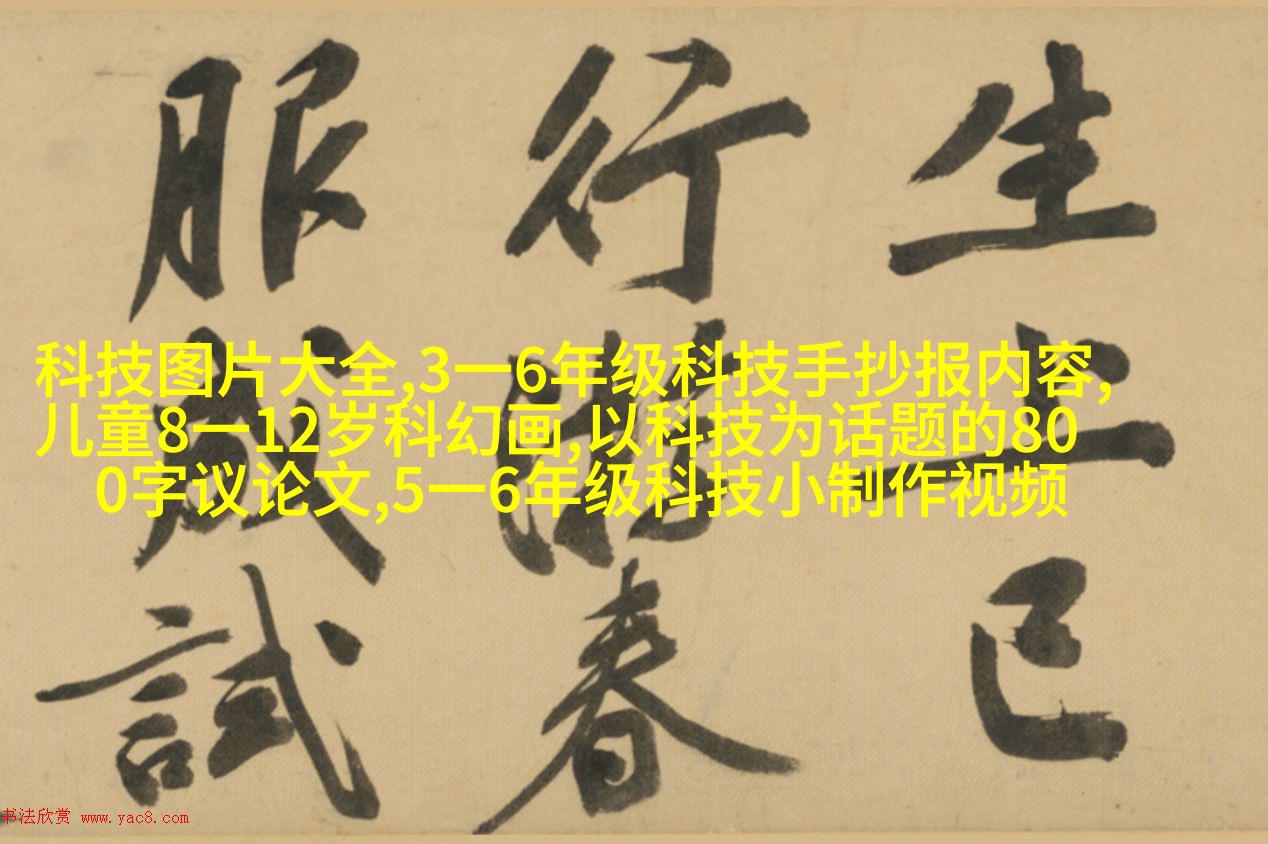 生上巳
行春
服成試
科技图片大全,3一6年级科技手抄报内容,
儿童8一12岁科幻画,以科技为话题的80
0字议论文,5一6年级科技小制作视频
书法欣赏 www.yac8.com